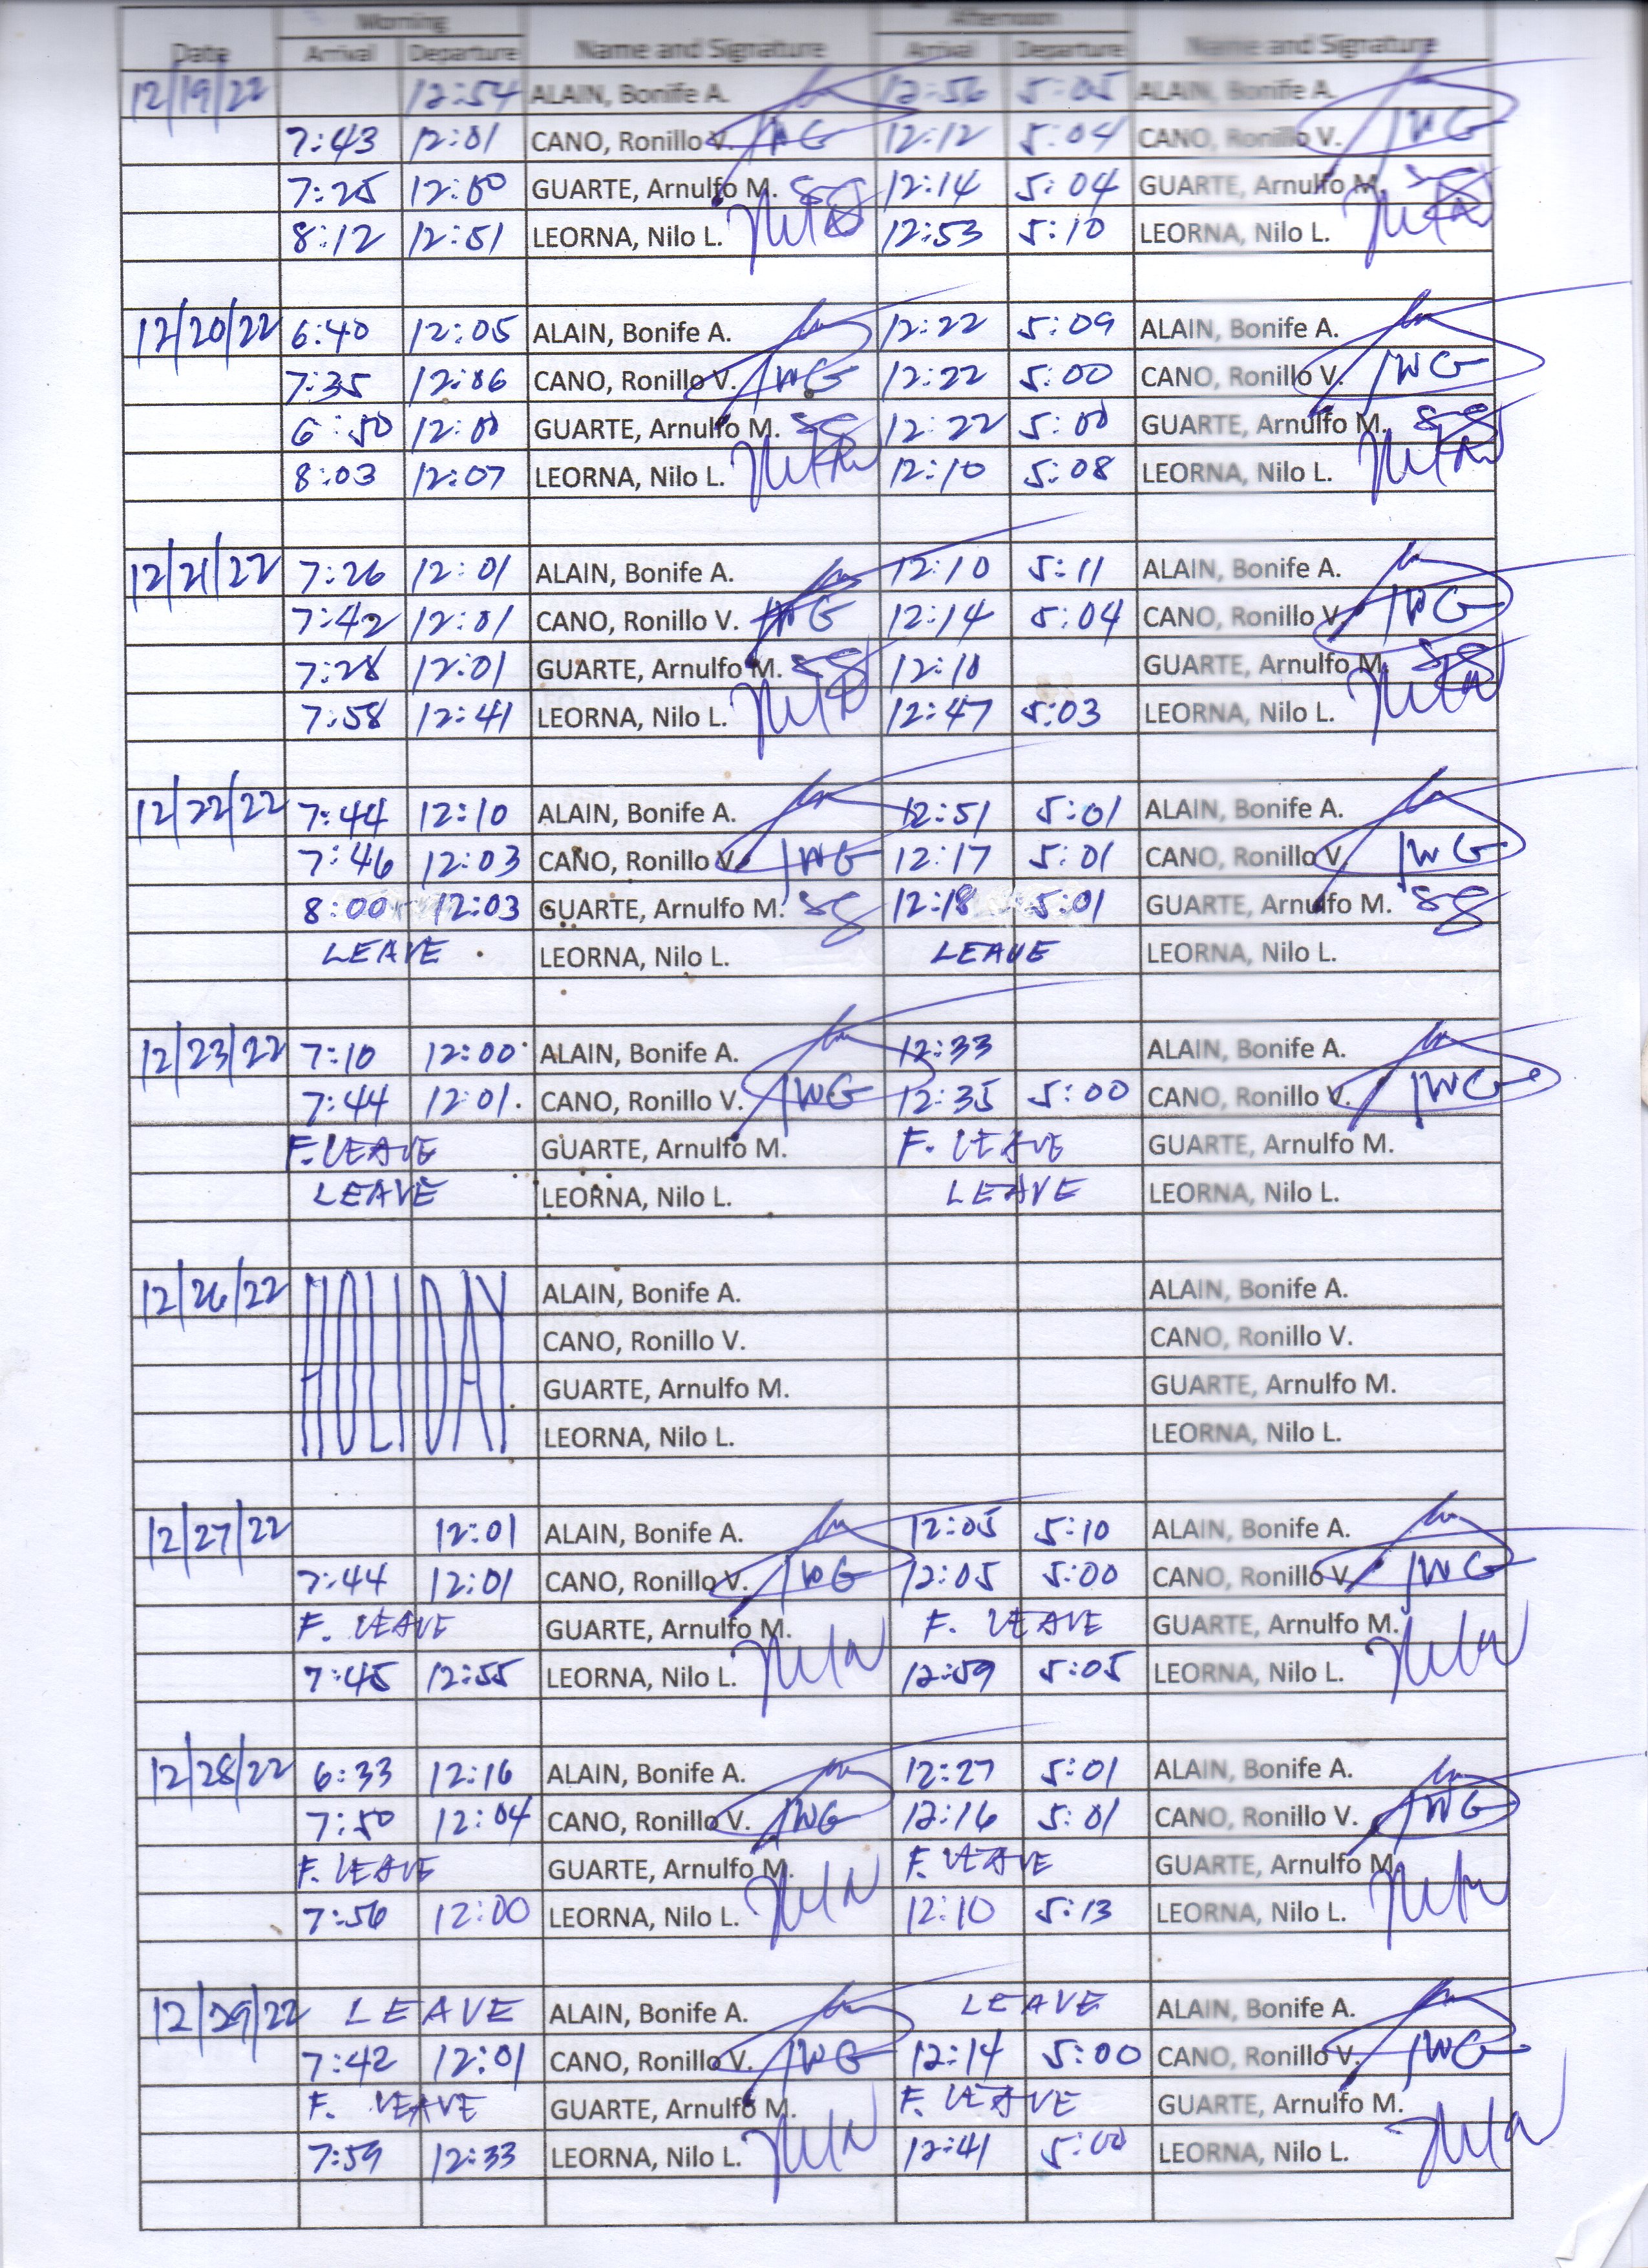 Morning Afternoon
Date Arrival Departure Name and Signature Arrival Departure Name and Signature
12/19/22 12:54 ALAIN, Bonife A. 12:56 5:05 ALAIN, Bonife A.
7:43 12:01 CANO, Ronillo V. 12:12 5:04 CANO, Ronillo V.
7:25 12:00 GUARTE, Arnulfo M. 12:14 5:04 GUARTE, Arnulfo M.
8:12 12:51 LEORNA, Nilo L. 12:53 5:10 LEORNA, Nilo L.
12/20/22 6:40 12:05 ALAIN, Bonife A. 12:22 5:09 ALAIN, Bonife A.
7:35 12:06 CANO, Ronillo V. 12:22 5:00 CANO, Ronillo V.
6:50 12:00 GUARTE, Arnulfo M. 12:22 5:00 GUARTE, Arnulfo M.
8:03 12:07 LEORNA, Nilo L. 12:10 5:08 LEORNA, Nilo L.
12/21/22 7:26 12:01 ALAIN, Bonife A. 12:10 5:11 ALAIN, Bonife A.
7:42 12:01 CANO, Ronillo V. 12:14 5:04 CANO, Ronillo V.
7:28 12:01 GUARTE, Arnulfo M. 12:10 GUARTE, Arnulfo M.
7:58 12:41 LEORNA, Nilo L. 12:47 5:03 LEORNA, Nilo L.
12/22/22 7:44 12:10 ALAIN, Bonife A. 12:51 5:01 ALAIN, Bonife A.
7:46 12:03 CANO, Ronillo V. 12:17 5:01 CANO, Ronillo V.
8:00 12:03 GUARTE, Arnulfo M. 12:18 5:01 GUARTE, Arnulfo M.
LEAVE LEORNA, Nilo L. LEAVE LEORNA, Nilo L.
12/23/22 7:10 12:00 ALAIN, Bonife A. 12:33 ALAIN, Bonife A.
7:44 12:01 CANO, Ronillo V. 12:35 5:00 CANO, Ronillo V.
F. LEAVE GUARTE, Arnulfo M. F. LEAVE GUARTE, Arnulfo M.
LEAVE LEORNA, Nilo L. LEAVE LEORNA, Nilo L.
12/26/22 HOLIDAY ALAIN, Bonife A. ALAIN, Bonife A.
CANO, Ronillo V. CANO, Ronillo V.
GUARTE, Arnulfo M. GUARTE, Arnulfo M.
LEORNA, Nilo L. LEORNA, Nilo L.
12/27/22 12:01 ALAIN, Bonife A. 12:05 5:10 ALAIN, Bonife A.
7:44 12:01 CANO, Ronillo V. 12:05 5:00 CANO, Ronillo V.
F. LEAVE GUARTE, Arnulfo M. F. LEAVE GUARTE, Arnulfo M.
7:45 12:55 LEORNA, Nilo L. 12:59 5:05 LEORNA, Nilo L.
12/28/22 6:33 12:16 ALAIN, Bonife A. 12:27 5:01 ALAIN, Bonife A.
7:50 12:04 CANO, Ronillo V. 12:16 5:01 CANO, Ronillo V.
F. LEAVE GUARTE, Arnulfo M. F. LEAVE GUARTE, Arnulfo M.
7:56 12:00 LEORNA, Nilo L. 12:10 5:13 LEORNA, Nilo L.
12/29/22 LEAVE ALAIN, Bonife A. LEAVE ALAIN, Bonife A.
7:42 12:01 CANO, Ronillo V. 12:14 5:00 CANO, Ronillo V.
F. LEAVE GUARTE, Arnulfo M. F. LEAVE GUARTE, Arnulfo M.
7:59 12:33 LEORNA, Nilo L. 12:41 5:00 LEORNA, Nilo L.